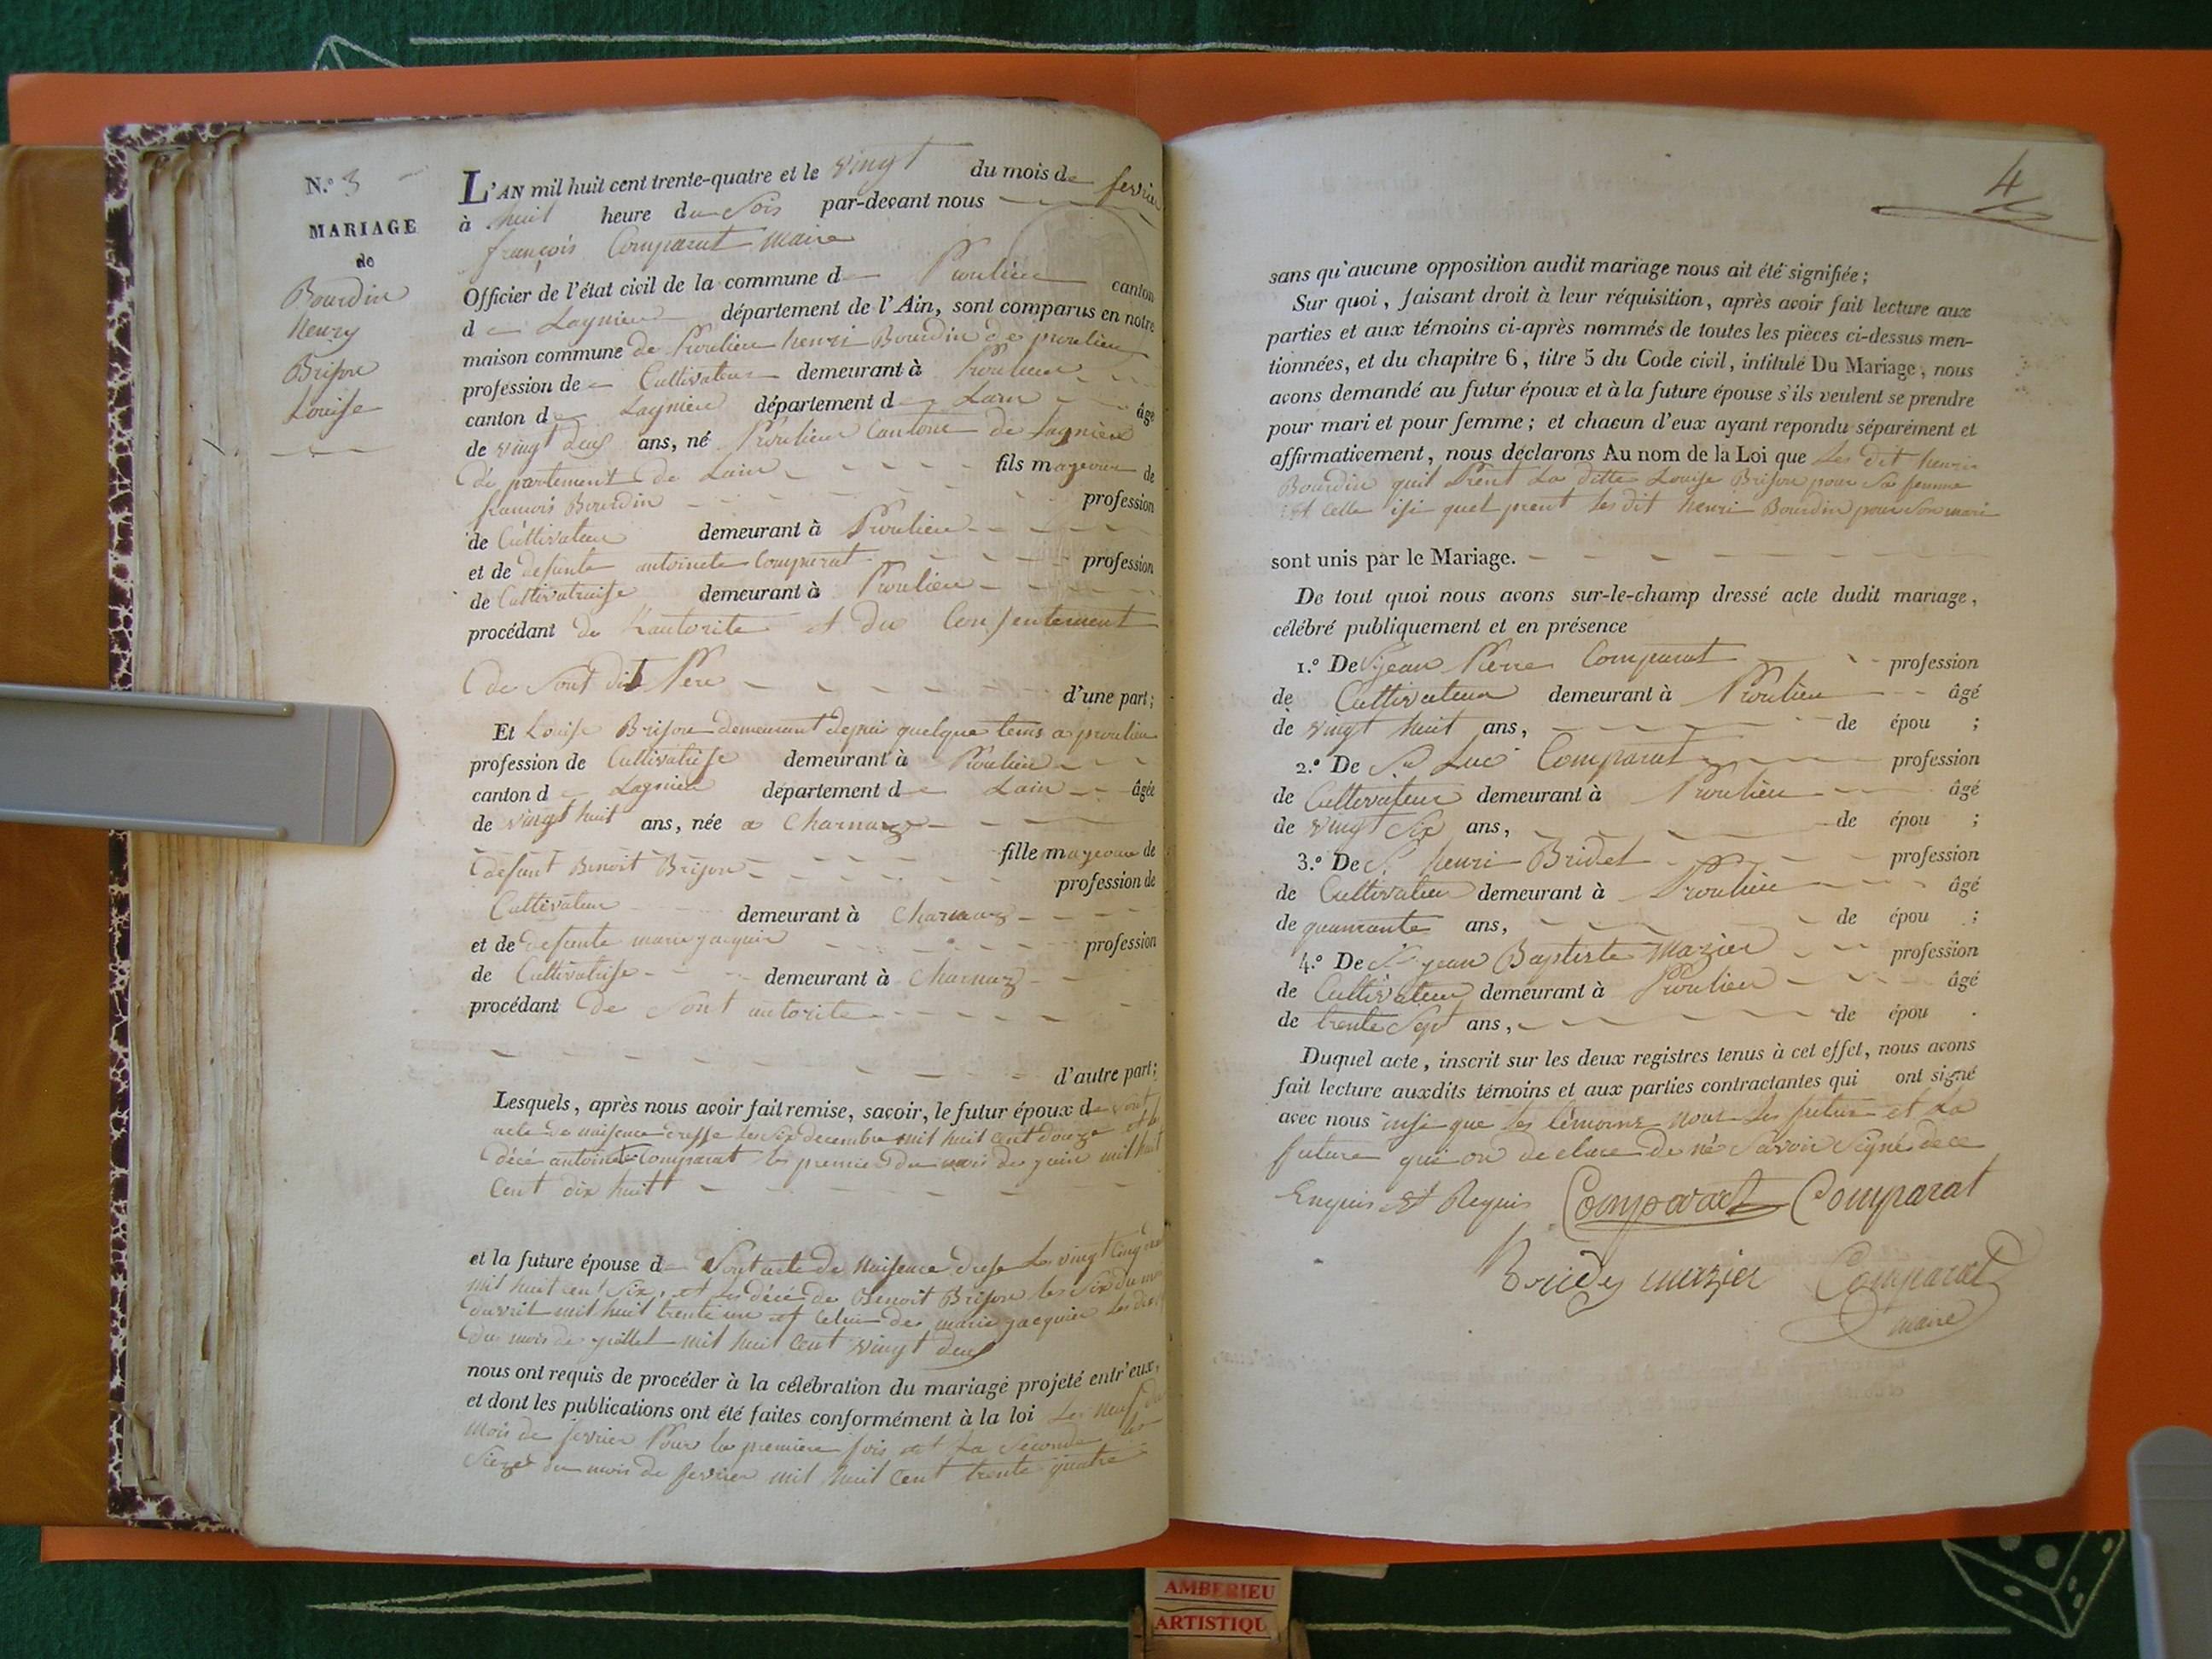 N.º 3
MARIAGE
de
Bourdin
henry
Brison
Louise
L'AN mil huit cent trente-quatre et le vingt du mois de fevrier
à huit heure du Soir par-devant nous
françois Comparat Maire
Officier de l'état civil de la commune de Proulieu canton
de Lagnieu département de l'Ain, sont comparus en notre
maison commune de Proulieu henri Bourdin de proulieu
profession de Cultivateur demeurant à Proulieu
canton de Lagnieu département de Lain âgé
de vingt deux ans, né Proulieu Cantone de Lagnieu
département de Lain fils mageour de
francois Bourdin profession
de Cultivateur demeurant à Proulieu
et de defunte antoinete Comparat profession
de Cultivatraise demeurant à Proulieu
procédant de Lautorite et du Consentement
de Sont dit Pere d'une part;
Et Louise Brison demeurant depui quelque tems a proulieu
profession de Cultivatrise demeurant à Proulieu
canton de Lagnieu département de Lain âgée
de vingt huit ans, née a Charnaz
defunt Benoit Brison fille mageoure de
Cultivateur profession de
demeurant à Charnaz
et de defunte marie jacquin profession
de Cultivatrise demeurant à Charnaz
procédant de Sont autorite
d'autre part;
Lesquels, après nous avoir fait remise, savoir, le futur époux de Sont
acte de naisence dresse les Six decembre mil huit Cent douze et le
décé antoinete Comparat les premier du mois de juin mil huit
Cent dix huit
et la future épouse de Sont acte de Naisence drese Le vingt Cinq
mil huit cent Six, et les décé de Benoit Brison les Six du mois
davril mil huit trente un et Celui de marie jacquin les
du mois de juillet mil huit Cent vingt deux
nous ont requis de procéder à la célébration du mariage projeté entr'eux,
et dont les publications ont été faites conformément à la loi Les neuf du
mois de fevrier Pour la premiere fois et La Seconde les
Sieze du mois de fevrier mil huit Cent trente quatre
4
sans qu'aucune opposition audit mariage nous ait été signifiée;
Sur quoi, faisant droit à leur réquisition, après avoir fait lecture aux
parties et aux témoins ci-après nommés de toutes les pièces ci-dessus men-
tionnées, et du chapitre 6, titre 5 du Code civil, intitulé Du Mariage, nous
avons demandé au futur époux et à la future épouse s'ils veulent se prendre
pour mari et pour femme; et chacun d'eux ayant repondu séparément et
affirmativement, nous déclarons Au nom de la Loi que Les dit henri
Bourdin quil Prent La ditte Louise Brison pour Sa femme
Et Celle isi quel prent les dit henri Bourdin pour Son mari
sont unis par le Mariage.
De tout quoi nous avons sur-le-champ dressé acte dudit mariage,
célébré publiquement et en présence
1.º De S. jean Pierre Comparat profession
de Cultivateur demeurant à Proulieu âgé
de vingt huit ans, de épou ;
2.º De Sr Luc Comparat profession
de Cultivateur demeurant à Proulieu âgé
de vingt Six ans, de épou ;
3.º De S. henri Bridet profession
de Cultivateur demeurant à Proulieu âgé
de quaurante ans, de épou ;
4.º De Sr jean Baptiste Mazier profession
de Cultivateur demeurant à Proulieu âgé
de trente Sept ans, de épou .
Duquel acte, inscrit sur les deux registres tenus à cet effet, nous avons
fait lecture auxdits témoins et aux parties contractantes qui ont signé
avec nous insi que les témoins nous les futur et La
future qui on declare de né Savoir Signé de ce
Enquis Et Requis Comparat Comparat
Bridet mazier Comparat
maire
AMBERIEU
ARTISTIQU